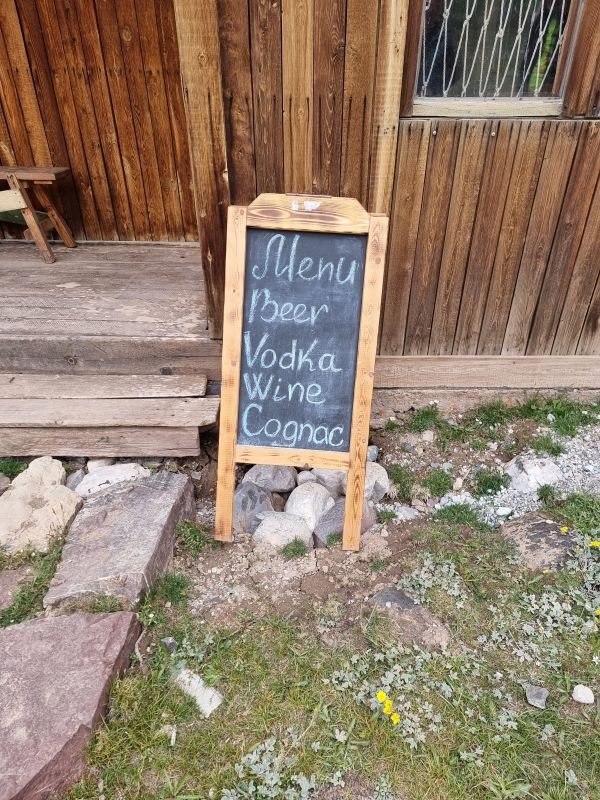 Menu
Beer
Vodka
Wine
Cognac